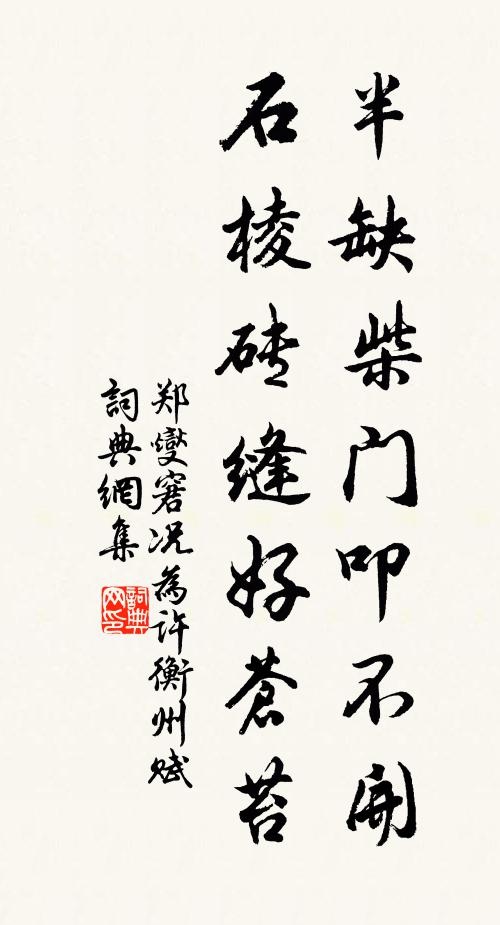 半缺柴门叩不開
石棱砖缝好蒼苔
郑燮窘况為许衡州赋
詞典網集
詞典网印